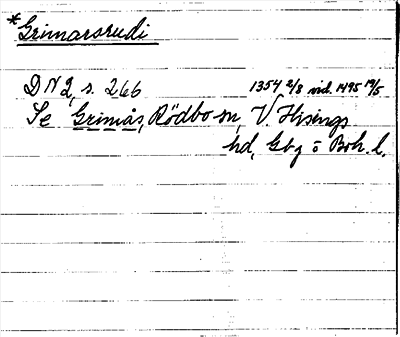 *Grimarsrudi
DN 2, s. 266 1354 2/8 vid. 1495 19/5
Se Grimås, Rödbo sn, V Hisings
hd, Gbg o Boh. l.